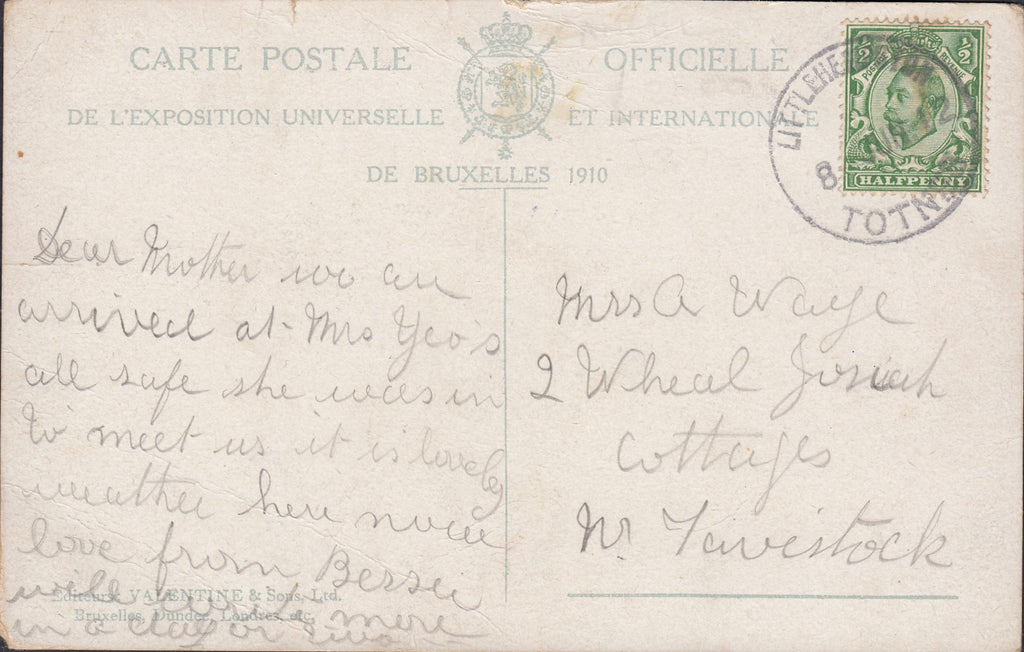 CARTE POSTALE OFFICIELLE
DE L'EXPOSITION UNIVERSELLE ET INTERNATIONALE
DE BRUXELLES 1910
½ ½
POSTAGE REVENUE
HALFPENNY
TOTNES
8
12
Dear Mother we are
arrived at Mrs Yeo's
all safe she was in
to meet us it is lovely
weather here now
love from Bessie
will write more
in a day or two
Mrs A Waye
2 Wheal Josiah
Cottages
Nr Tavistock
Editeurs VALENTINE & Sons, Ltd.
Bruxelles, Dundee, Londres, etc.